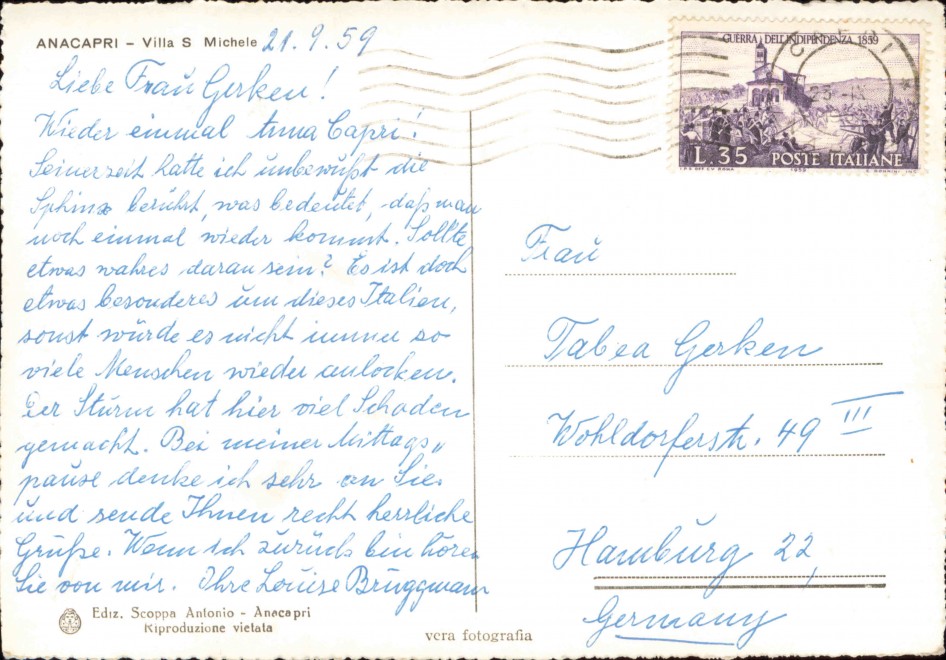 ANACAPRI – Villa S Michele 21.9.59
Liebe Frau Gerken!
Wieder einmal Anna Capri!
Seinerzeit hatte ich unbewußt die
Sphinx berührt, was bedeutet, daß man
noch einmal wieder kommt. Sollte
etwas wahres daran sein? Es ist doch
etwas besonderes um dieses Italien,
sonst würde es nicht immer so
viele Menschen wieder anlocken.
Der Sturm hat hier viel Schaden
gemacht. Bei meiner Mittags„
pause denke ich sehr an Sie
und sende Ihnen recht herrliche
Grüße. Wenn ich zurück bin hören
Sie von mir. Ihre Louise Brüggmann
Ediz. Scoppa Antonio - Anacapri
Riproduzione vietata
vera fotografia
GUERRA DELL'INDIPENDENZA 1859
L.35 POSTE ITALIANE
Frau
Tabea Gerken
Wohldorferstr. 49 III
Hamburg 22,
Germany